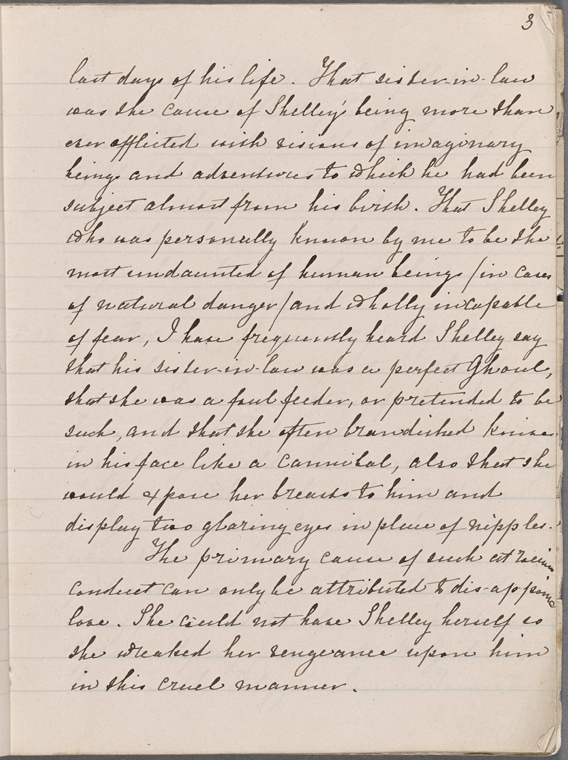 3
last days of his life. That sister-in-law
was the cause of Shelley's being more than
ever afflicted with visions of imaginary
beings and adventures to which he had been
subject almost from his birth. That Shelley
who was personally known by me to be the
most undaunted of human beings (in cases
of natural danger) and wholly incapable
of fear, I have frequently heard Shelley say
that his sister-in-law was a perfect Ghoul,
that she was a foul feeder, or pretended to be
such, and that she often brandished knives
in his face like a Cannibal, also that she
would expose her breasts to him and
display two glaring eyes in place of nipples.
The primary cause of such atrocious
conduct can only be attributed to
love. She could not have Shelley herself so
she wreaked her vengeance upon him
in this cruel manner.